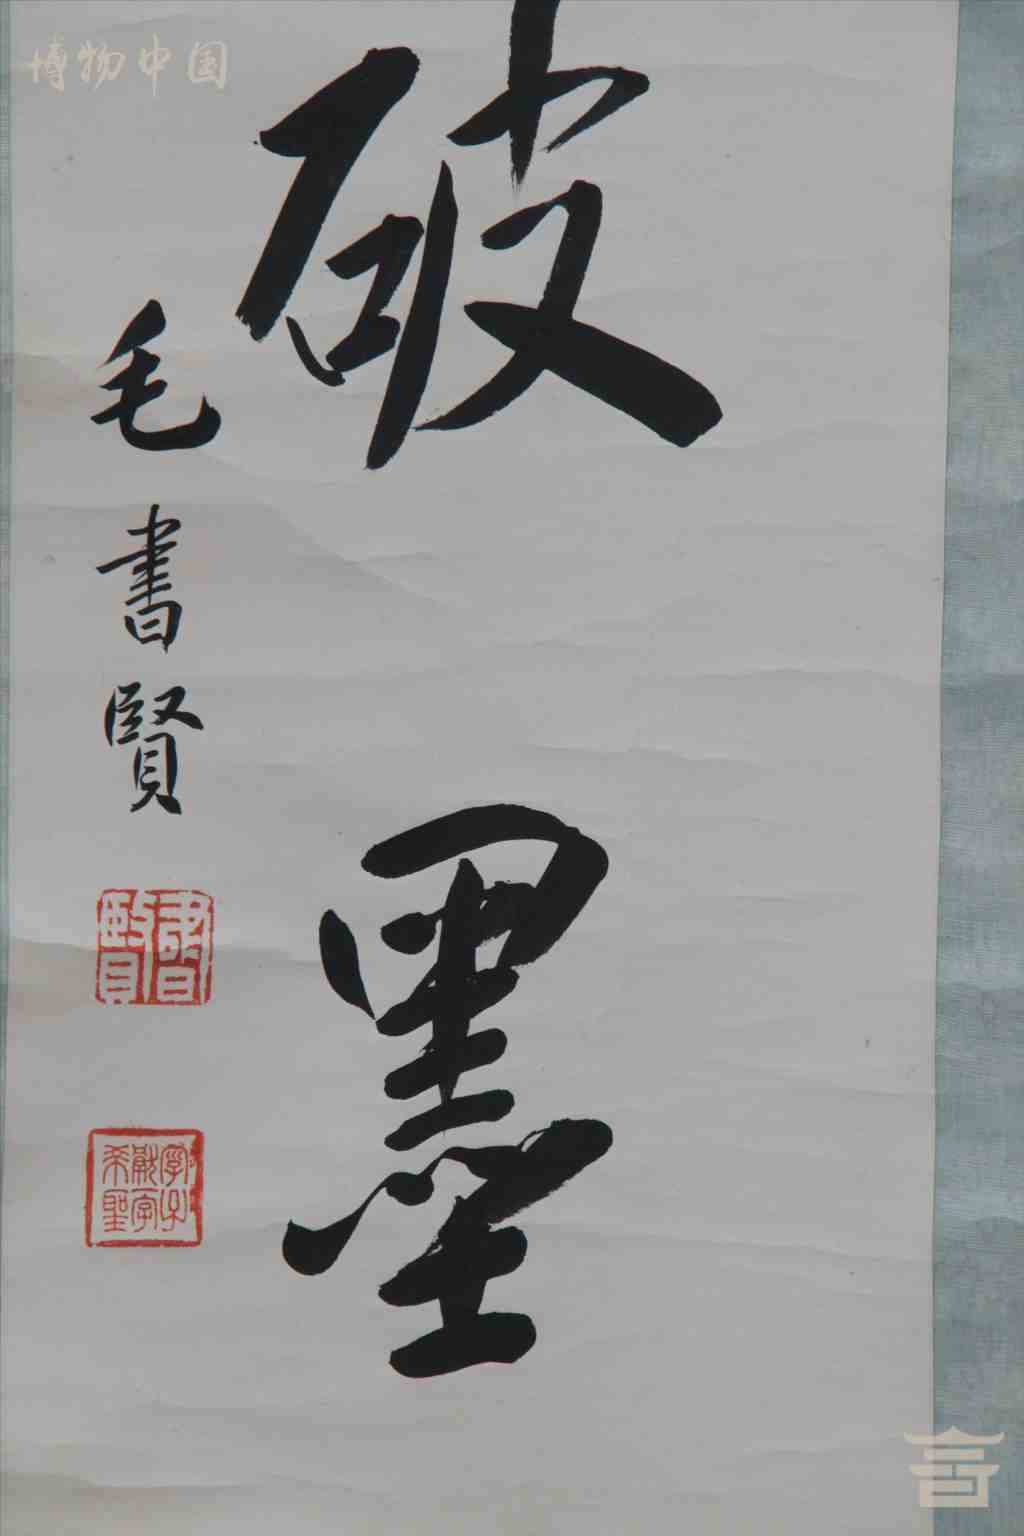 博物中国
破墨
毛書賢
書賢